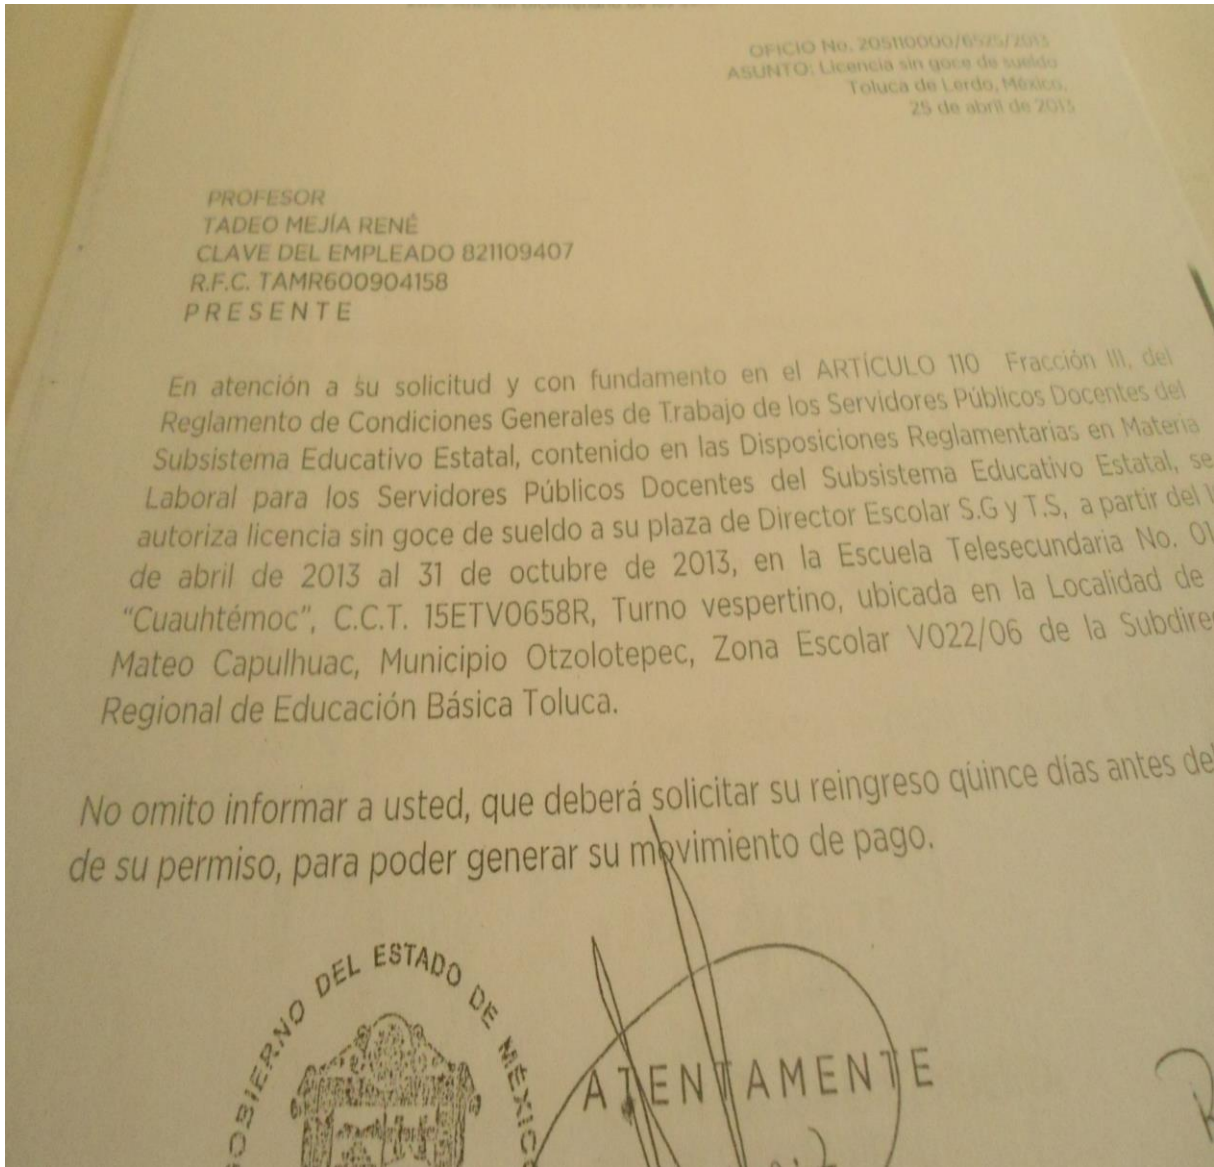 OFICIO No. 205110000/6525/2013
ASUNTO: Licencia sin goce de sueldo
Toluca de Lerdo, México,
25 de abril de 2013
PROFESOR
TADEO MEJÍA RENÉ
CLAVE DEL EMPLEADO 821109407
R.F.C. TAMR600904158
PRESENTE
En atención a su solicitud y con fundamento en el ARTÍCULO 110 Fracción III, del
Reglamento de Condiciones Generales de Trabajo de los Servidores Públicos Docentes del
Subsistema Educativo Estatal, contenido en las Disposiciones Reglamentarias en Materia
Laboral para los Servidores Públicos Docentes del Subsistema Educativo Estatal, se
autoriza licencia sin goce de sueldo a su plaza de Director Escolar S.G y T.S, a partir del
de abril de 2013 al 31 de octubre de 2013, en la Escuela Telesecundaria No. 01
"Cuauhtémoc", C.C.T. 15ETV0658R, Turno vespertino, ubicada en la Localidad de
Mateo Capulhuac, Municipio Otzolotepec, Zona Escolar V022/06 de la Subdire
Regional de Educación Básica Toluca.
No omito informar a usted, que deberá solicitar su reingreso quince días antes del
de su permiso, para poder generar su movimiento de pago.
GOBIERNO DEL ESTADO DE MÉXICO
ATENTAMENTE